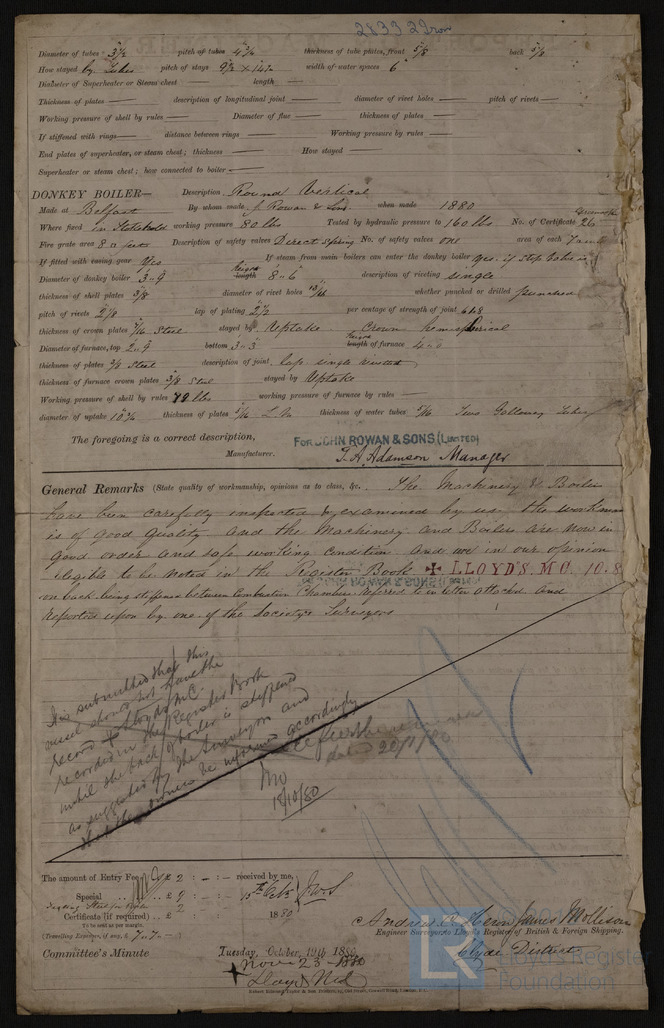 2833 Iron
Diameter of tubes 3½ pitch of tubes 4¾ thickness of tube plates, front 5/8 back 5/8
How stayed by Tubes pitch of stays 9½ × 14½ width of water spaces 6"
Diameter of Superheater or Steam chest — length —
Thickness of plates — description of longitudinal joint — diameter of rivet holes — pitch of rivets —
Working pressure of shell by rules — Diameter of flue — thickness of plates —
If stiffened with rings — distance between rings — Working pressure by rules —
End plates of superheater, or steam chest; thickness — How stayed —
Superheater or steam chest; how connected to boiler —
DONKEY BOILER— Description Round Vertical
Made at Belfast By whom made J. Rowan & Sons when made 1880
Where fixed in Stokehold working pressure 80 lbs Tested by hydraulic pressure to 160 lbs No. of Certificate 26
Fire grate area 8 □ feet Description of safety valves Direct Spring No. of safety valves one area of each 7
If fitted with easing gear Yes If steam from main boilers can enter the donkey boiler yes. if stop valve is
Diameter of donkey boiler 3..9 height length 8"6 description of riveting single
thickness of shell plates 3/8 diameter of rivet holes 13/16 whether punched or drilled punched
pitch of rivets 2 1/8 lap of plating 2½ per centage of strength of joint 61.8
thickness of crown plates 7/16 Steel stayed by Uptake Crown hemispherical
Diameter of furnace, top 2..9 bottom 3..3 height length of furnace 4..0
thickness of plates 3/8 Steel description of joint lap single riveted
thickness of furnace crown plates 3/8 Steel stayed by Uptake
Working pressure of shell by rules lbs working pressure of furnace by rules —
diameter of uptake 10¾ thickness of plates 5/16 thickness of water tubes 5/16 Two Galloway Tubes
The foregoing is a correct description,
FOR JOHN ROWAN & SONS (LIMITED)
Manufacturer. T. A. Adamson Manager
General Remarks (State quality of workmanship, opinions as to class, &c. The Machinery & Boiler
have been carefully inspected & examined by us. the workman
is of good quality and the Machinery and Boilers are now in
good order and safe working condition and are in our opinion
eligible to be noted in the Register Book ✠ LLOYD'S. M C. 10.8
on back being stiffened between Combustion Chambers, referred to in letter attached and
reported upon by one of the Society's Surveyors
It is submitted that this
vessel should not have the
record ✠ Lloyds MC.
recorded in the Register Book
until the back of boiler is stiffened
as suggested by the Surveyors and
that the owners be informed accordingly
18/10/80
dated 20/1/80
The amount of Entry Fee £ 2 : - : - received by me,
Special £ 9 : - : - 15th Octr
Certificate (if required) .. £ 1880
To be sent as per margin.
(Travelling Expenses, if any, £ 7.7.-)
Andrew James Mollison
Engineer Surveyor to Lloyd's Register of British & Foreign Shipping.
Clyde District
Committee's Minute Tuesday, October, 19th 1880
Novr 23 1880
+ Lloyds
Lloyd's Register
Foundation